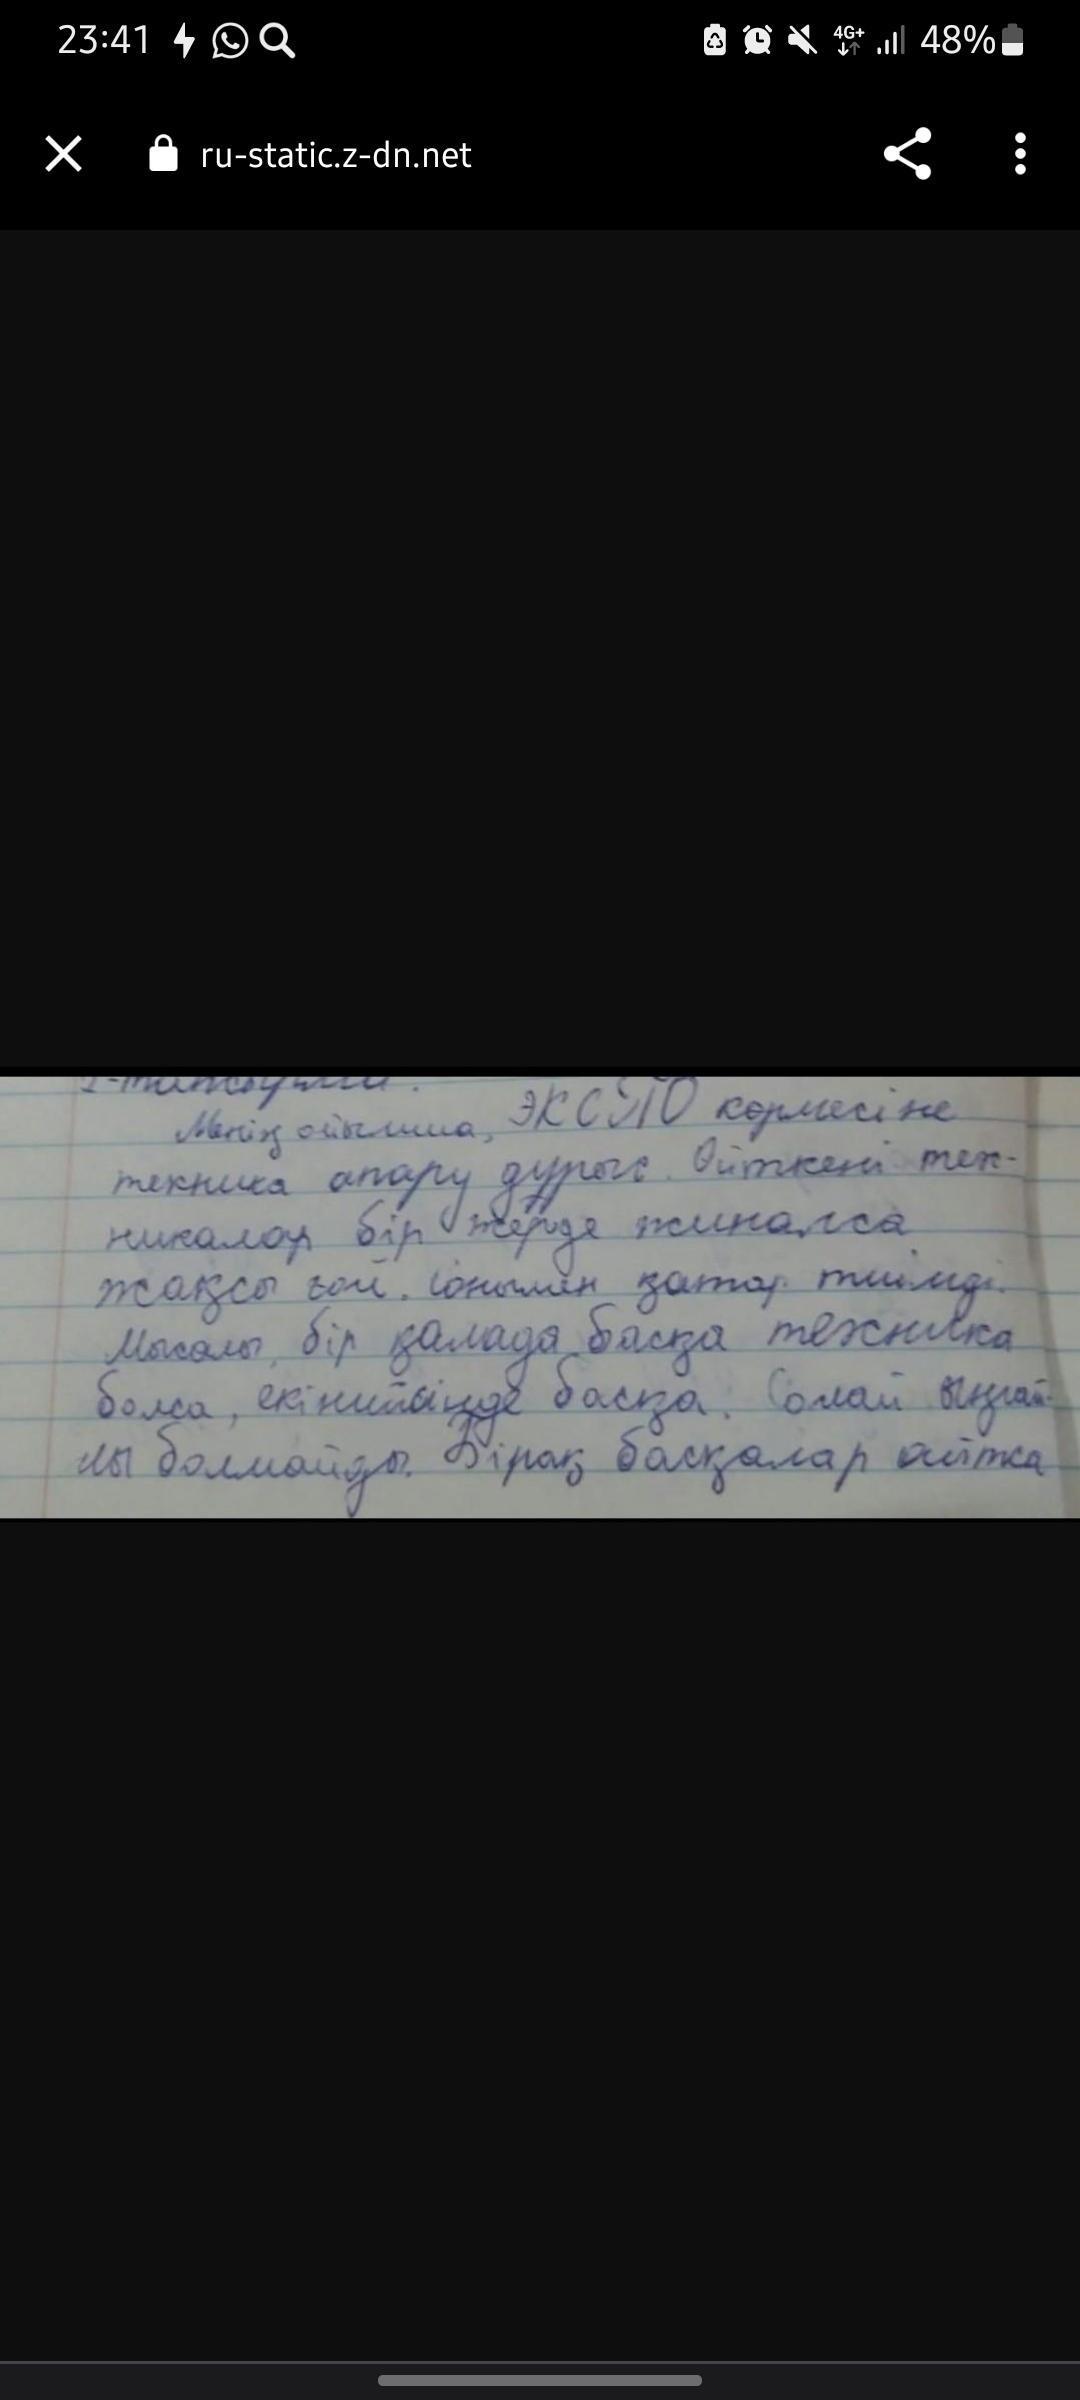 23:41 4G+ 48%
ru-static.z-dn.net
Менің ойымша, ЭКСПО көрмесіне
техника апару дұрыс. Өйткені тех-
никалар бір жерде жиналса
жақсы ғой. Сонымен қатар тиімді.
Мысалы, бір қалада басқа техника
болса, екіншісінде басқа. Солай ыңғай-
лы болмайды. Бірақ басқалар айтса